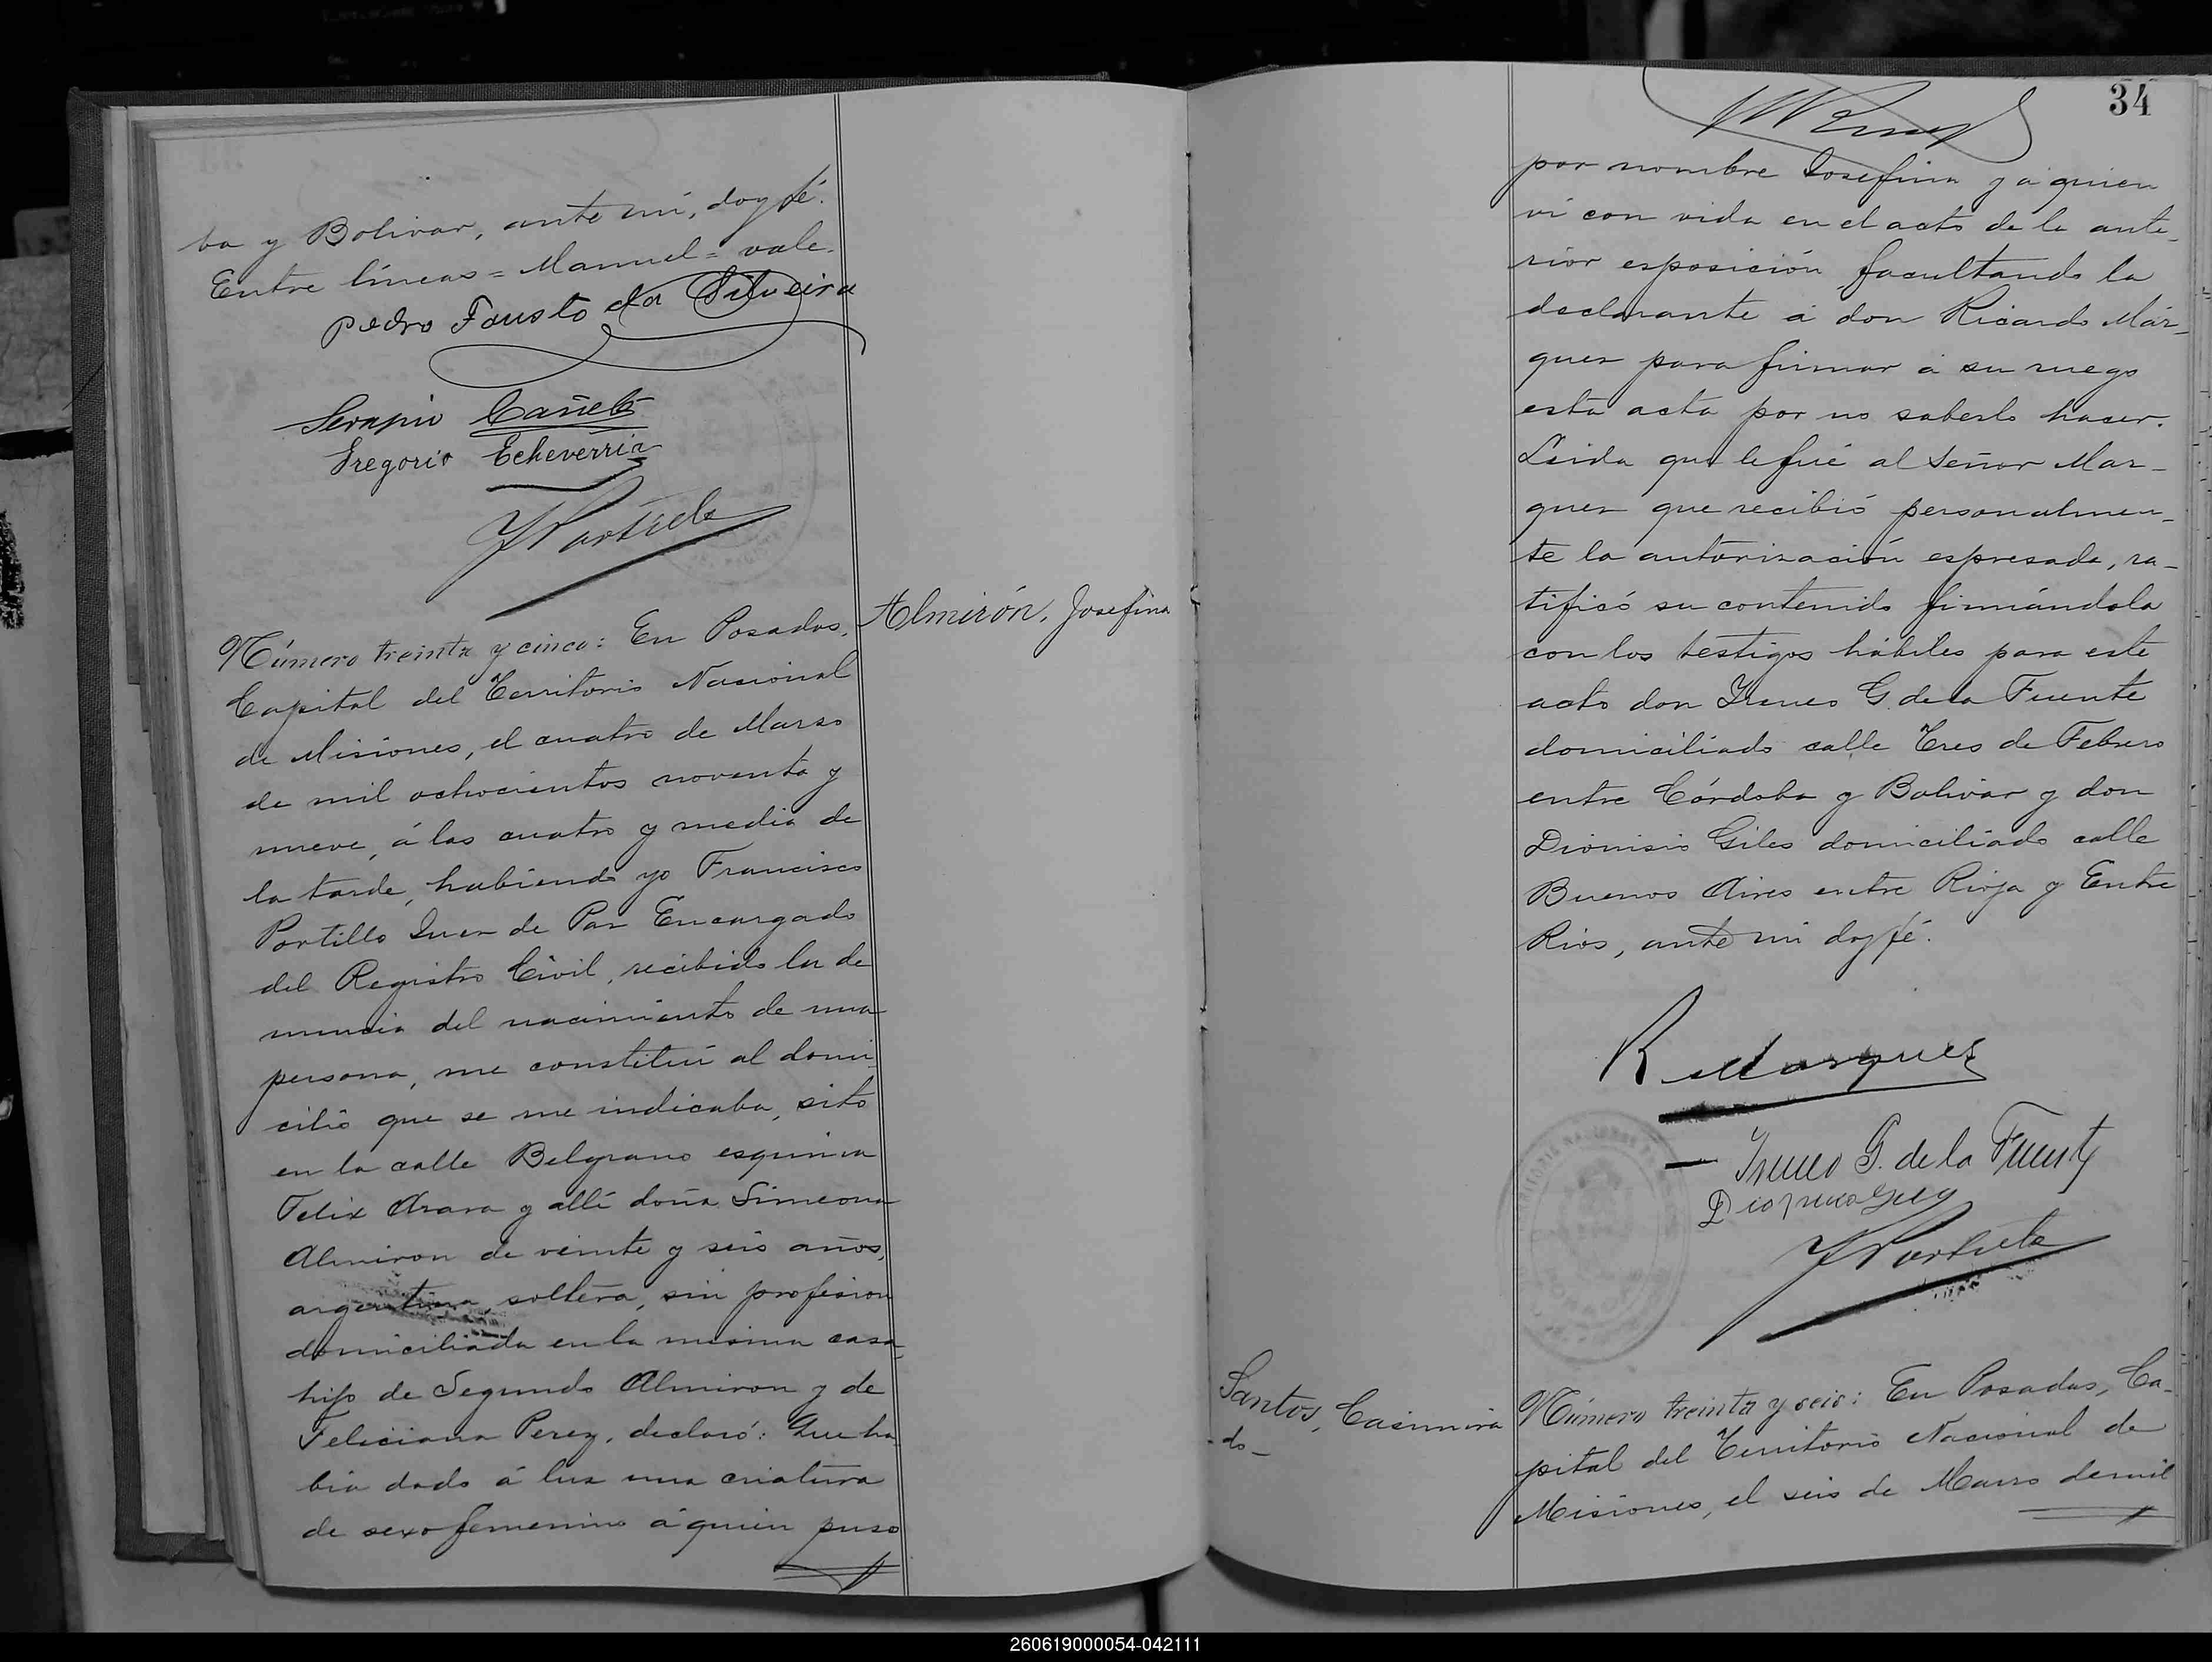 ba y Bolivar, ante mí, doy fé.
Entre líneas = Manuel = vale.
Pedro Fausto da Silveira
Serapio Cañete
Gregorio Echeverría
Número treinta y cinco: En Posadas,
Capital del Territorio Nacional
de Misiones, el cuatro de Marzo
de mil ochocientos noventa y
nueve, á las cuatro y media de
la tarde, habiendo yo Francisco
Portillo Juez de Paz Encargado
del Registro Civil, recibido la de
nuncia del nacimiento de una
persona, me constituí al domi
cilio que se me indicaba, sito
en la calle Belgrano esquina
Felix Azara y allí doña Simeona
Almiron de veinte y seis años,
argentina, soltera, sin profesion
domiciliada en la misma casa
hija de Segundo Almiron y de
Feliciana Perez, declaró: Que ha
bia dado á luz una criatura
de sexo femenino á quien puso
Almirón, Josefina
34
por nombre Josefina y á quien
ví con vida en el acto de la ante-
rior esposición, facultando la
declarante á don Ricardo Már-
quez para firmar á su ruego
esta acta por no saberlo hacer.
Leida que le fué al Señor Mar-
quez que recibió personalmen-
te la autorización espresada, ra-
tificó su contenido firmándola
con los testigos hábiles para este
acto don Ireneo G. de la Fuente
domiciliado calle Tres de Febrero
entre Córdoba y Bolivar y don
Dionisio Giles domiciliado calle
Buenos Aires entre Rioja y Entre
Rios, ante mi doy fé.
R Marquez
Ireneo G. de la Fuente
Santos, Casimira
-do-
Número treinta y seis: En Posadas, Ca-
pital del Territorio Nacional de
Misiones, el seis de Marzo de mil
260619000054-042111